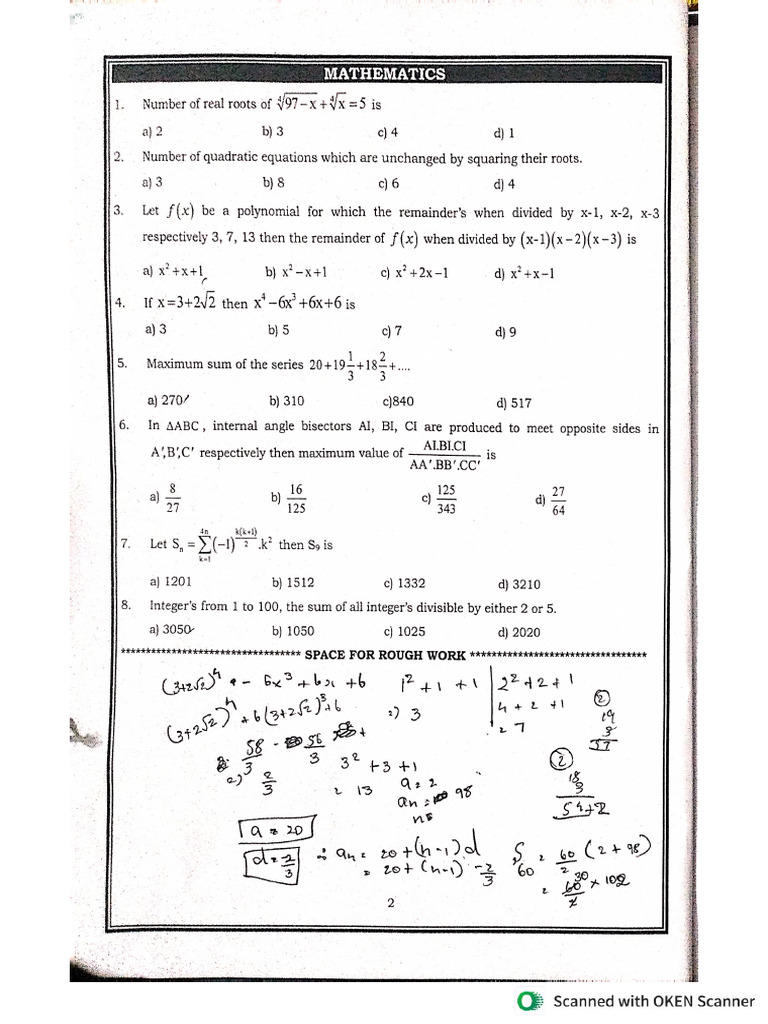 MATHEMATICS
1. Number of real roots of ∜(97−x) + ∜x = 5 is
a) 2 b) 3 c) 4 d) 1
2. Number of quadratic equations which are unchanged by squaring their roots.
a) 3 b) 8 c) 6 d) 4
3. Let f(x) be a polynomial for which the remainder's when divided by x-1, x-2, x-3
respectively 3, 7, 13 then the remainder of f(x) when divided by (x-1)(x−2)(x−3) is
a) x²+x+1 b) x²−x+1 c) x²+2x−1 d) x²+x−1
4. If x=3+2√2 then x⁴−6x³+6x+6 is
a) 3 b) 5 c) 7 d) 9
5. Maximum sum of the series 20+19 1/3+18 2/3+....
a) 270 b) 310 c)840 d) 517
6. In ΔABC, internal angle bisectors AI, BI, CI are produced to meet opposite sides in
A',B',C' respectively then maximum value of AI.BI.CI / AA'.BB'.CC' is
a) 8/27 b) 16/125 c) 125/343 d) 27/64
7. Let Sₙ = ∑_{k=1}^{4n} (−1)^{k(k+1)/2} .k² then S₉ is
a) 1201 b) 1512 c) 1332 d) 3210
8. Integer's from 1 to 100, the sum of all integer's divisible by either 2 or 5.
a) 3050 b) 1050 c) 1025 d) 2020
********************************** SPACE FOR ROUGH WORK **********************************
(3+2√2)⁴ - 6x³ + 6x + 6 1² + 1 + 1 2² + 2 + 1
(3+2√2)⁴ + 6(3+2√2)³ + 6 3 4 + 2 + 1 ②
= 7 19
3
57
58/3 - 56/3
2/3 3² + 3 + 1 ②
= 13 a = 2 18
aₙ = 98 3
n= 54+2
a = 20
d = -2/3 ∴ aₙ = 20 + (n-1)d S₆₀ = 60/2 (2 + 98)
= 20 + (n-1) -2/3 = 60/2 × 102
30
2
Scanned with OKEN Scanner